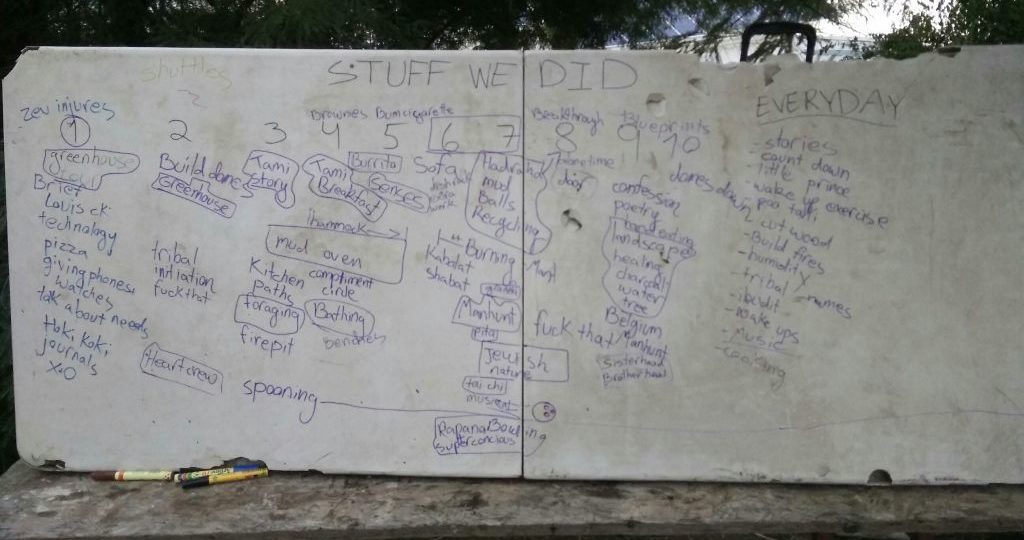 shuttles
STUFF WE DID
EVERYDAY
Zev injures
1
greenhouse
Brief
Louis ck
technology
pizza
giving phones,
watches
talk about needs
Hoki, Koki
journals
X+O
2
Build dome
Greenhouse
tribal
initiation
fuck that
Heart crew
3
Tami
story
Kitchen
paths
foraging
firepit
spooning
Brownies
4
Tami
Breakfast
hammock
mud oven
compliment
circle
Bathing
benches
Bumcigarette
5
Burrito
Senses
6
Sofa
Kabalat
shabat
7
Hadrachot
mud
Balls
Recycling
Burning
Man
Manhunt
pita
Jewish
nature
tai chi
music
Rapana Bowling
superconcious
Breakthrough
8
fuck that
Blueprints
9
confession
poetry
landscape
healing
charcoal
water
tree
Belgium
Manhunt
Sisterhood
Brotherhood
10
domes down
- stories
- count down
- little prince
- wake up exercise
- poo talk
- cut wood
- Build fires
- humidity
- tribal names
- wake ups
- music
- cooking